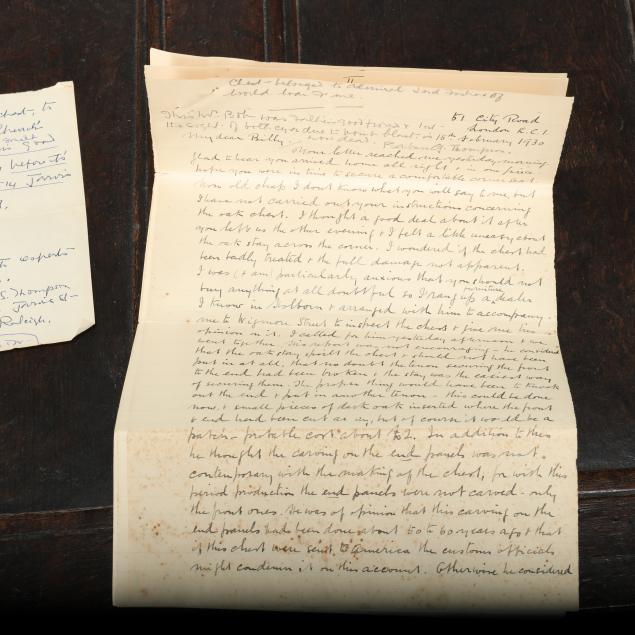 chest, to
Church
Good
reports
Jarvis
to experts
S. Thompson
Jarvis St-
Raleigh.
Chest - belonged to Admiral Lord
World War & me.
51 City Road
London E.C.1.
18th February 1930
My dear Billy,
Your letter reached me yesterday morning
glad to hear you arrived home all right & in one piece
hope you were in time to secure a comfortable corner seat
now old chap I don't know what you will say to me, but
I have not carried out your instructions concerning
the oak chest. I thought a good deal about it after
you left us the other evening & I felt a little uneasy about
the oak stay across the corner. I wondered if the chest had
been badly treated & the full damage not apparent.
I was (& am) particularly anxious that you should not
buy anything at all doubtful so I rang up a furniture dealer
I know in Holborn & arranged with him to accompany
me to Wigmore Street to inspect the chest & give me his
opinion on it. I called for him yesterday afternoon & we
went together. His report was not encouraging - he considered
that the oak stay spoilt the chest & should not have been
put in at all; that no doubt the tenon securing the front
to the end had been broken & the stay was the easiest way
of securing them. The proper thing would have been to knock
out the end & put in another tenon - this could be done
now, & small pieces of dark oak inserted where the front
& end had been cut away, but of course it would be a
patch - probable cost about £2. In addition to this
he thought the carving on the end panels was not
contemporary with the making of the chest, for with this
period production the end panels were not carved - only
the front ones. He was of opinion that this carving on the
end panels had been done about 50 to 60 years ago & that
if this chest were sent to America the customs officials
might condemn it on this account. Otherwise he considered